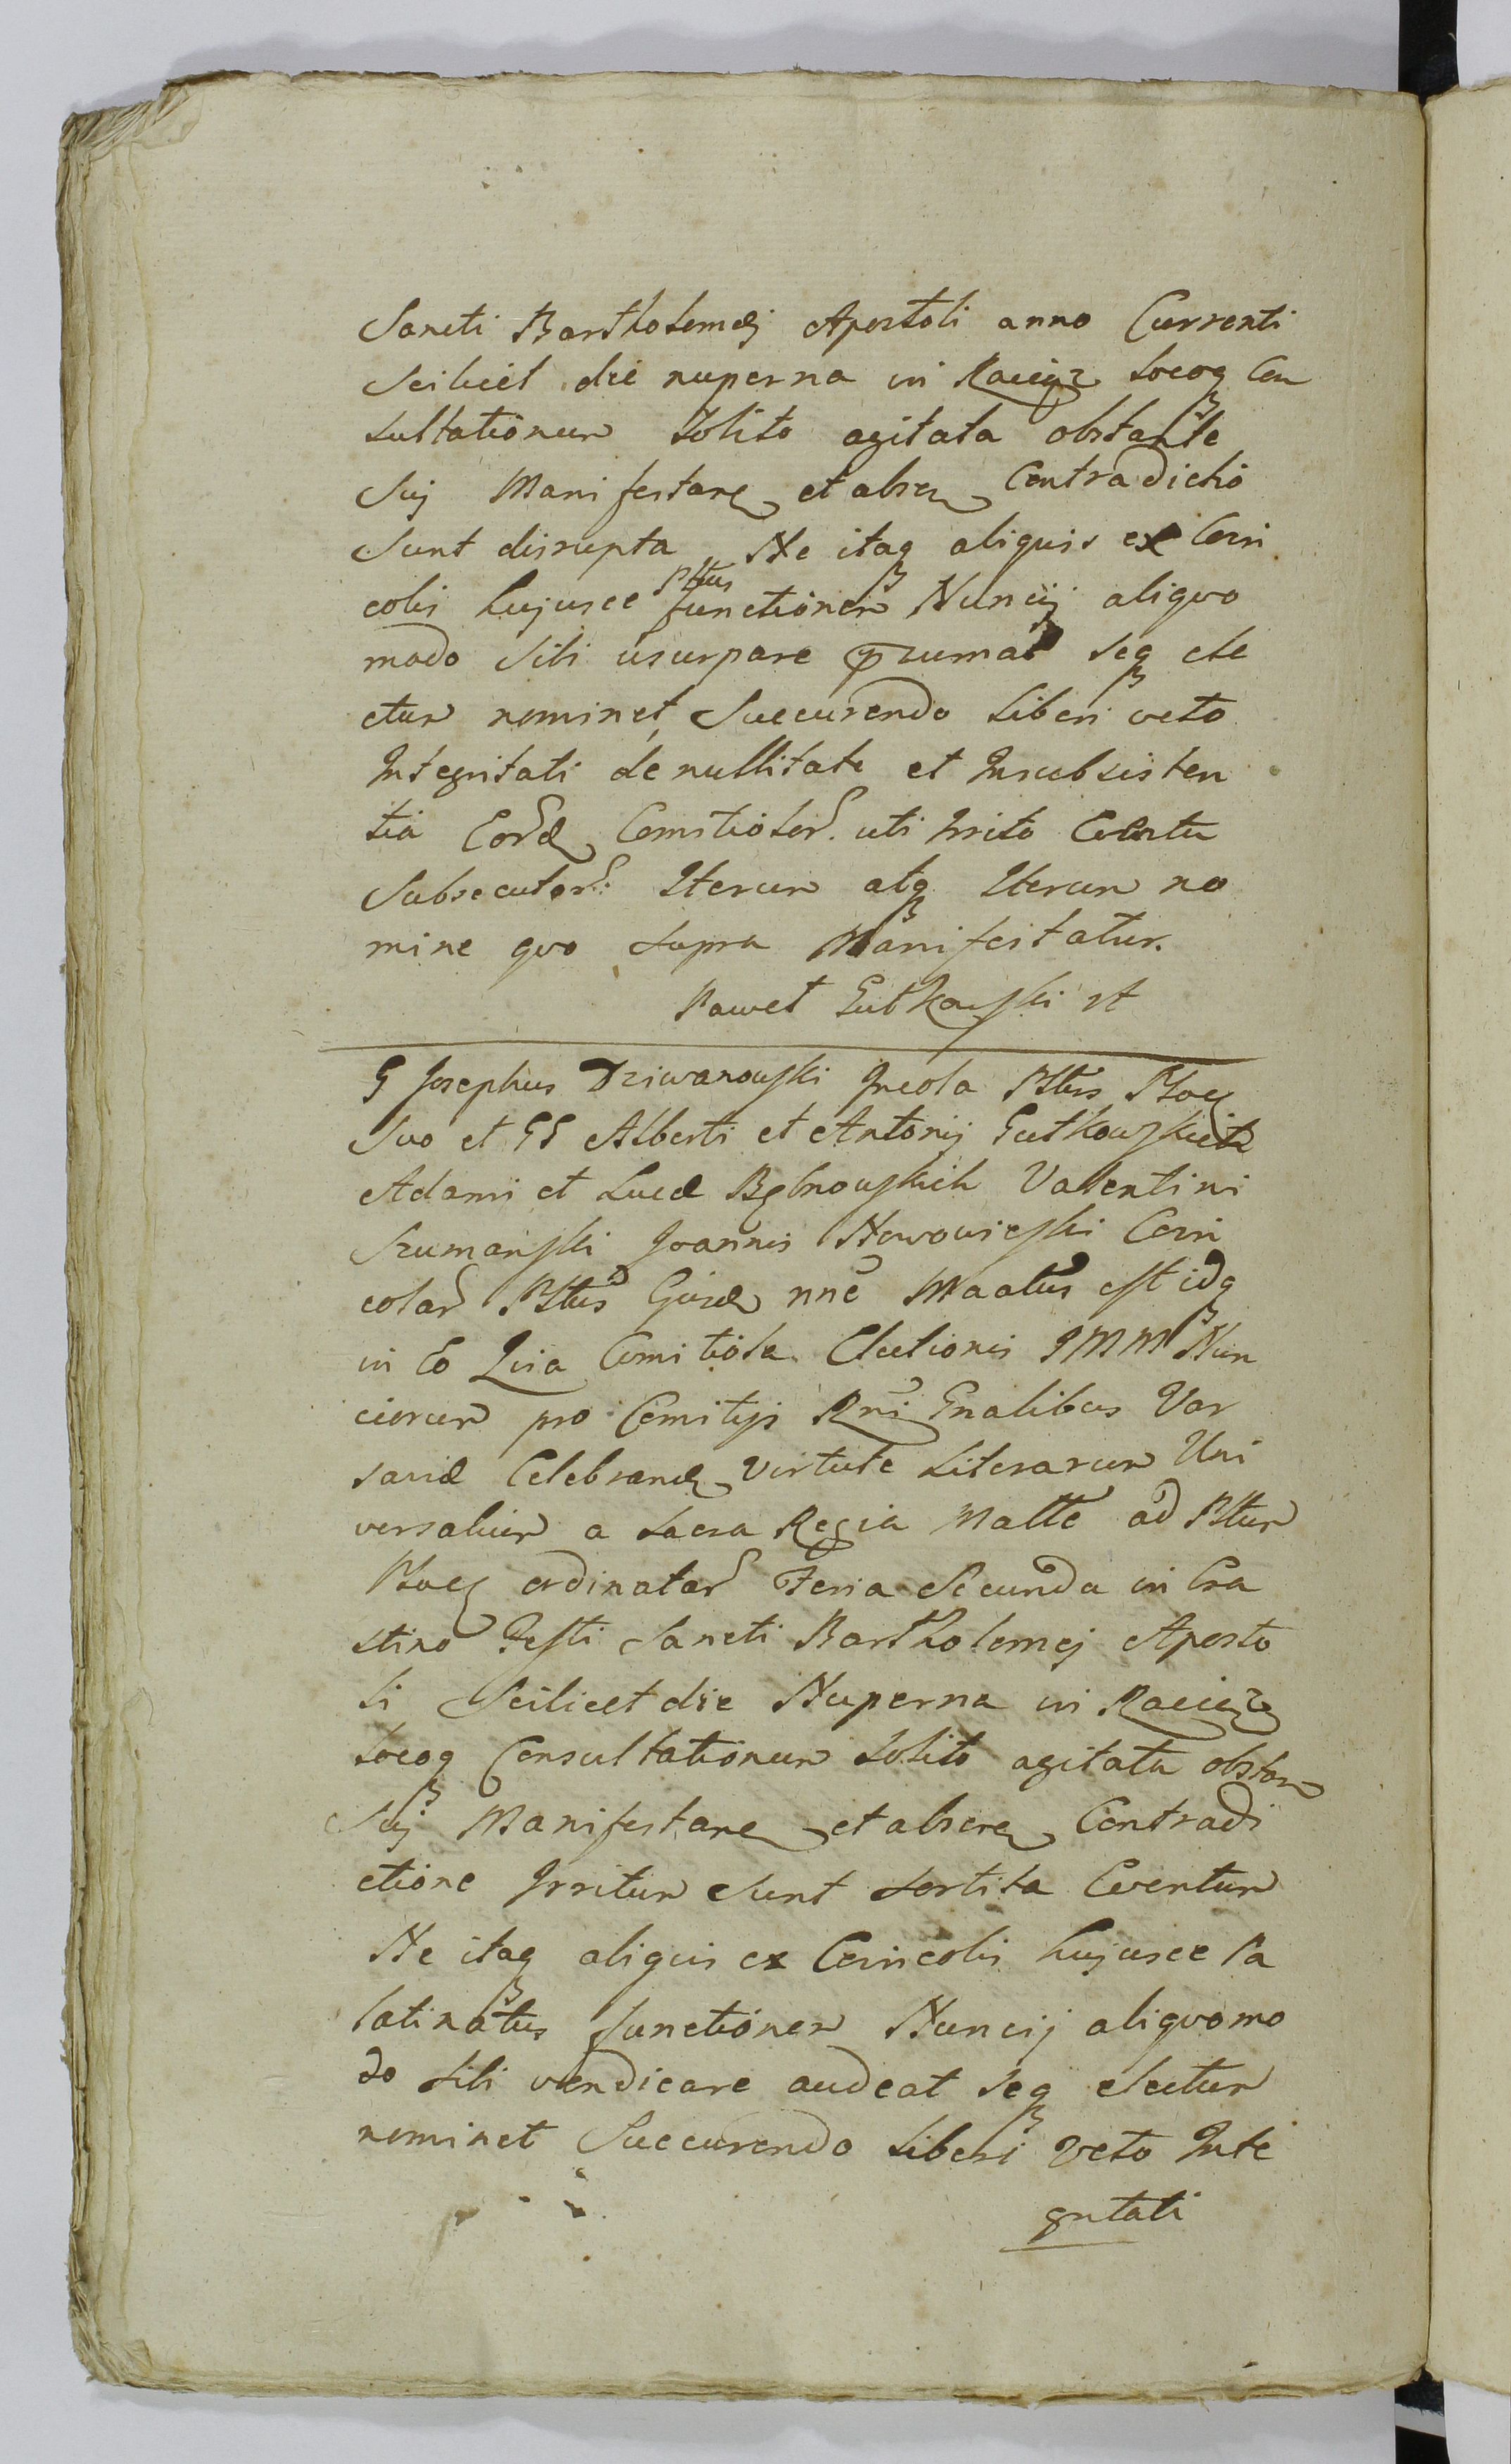 Sancti Bartholomæj Apostoli anno Currenti
Scilicet die nuperna in Raciąz Locoq Con
sultationum solito agitata obstante
Suj Manifestane et absq Contradictio
Sunt disrupta Ne itaq aliquis ex Coin
colis hujusce Pltus functionem Nuncij aliquo
modo Sibi usurpare p̄sumat seq ele
ctum nominet, Succurendo Liberi veto
Integritati de nullitate et Insubsisten
tia Eord Comitiolor. uti Irrito Eventu
Subsecutor: Iterum atq Iterum no
mine quo supra Manifestatur.
Paweł Gutkowski
G Josephus Dziwanowski Incola Pltus Ploc
Suo et GG Alberti et Antonij Gutkowskich
Adami et Lucæ Rębnowskich Valentini
Szumanski Joannis Nowowieski Coin
colar Pltus Ejusd nne Maatus est idq
in Eo Quia Comitiola Electionis IMM Nun
ciorum pro Comitijs Rni Gnalibus Var
saviæ Celebrand Virtute Literarum Uni
versalium a Sacra Regia Matte ad Pltum
Ploc ordinatar Feria Secunda in Cra
stino Festi Sancti Bartholomej Aposto
li Scilicet die Nuperna in Raciąz
Locoq Consultationum solito agitata obstan
Suj Manifestane et absq Contradi
ctione Irritum sunt sortita Eventum
Ne itaq aliquis ex Coincolis hujusce Pa
latinatus functionem Nuncij aliquomo
do sibi vendicare audeat seq electum
nominet Succurendo Liberi Veto Inte
gritati